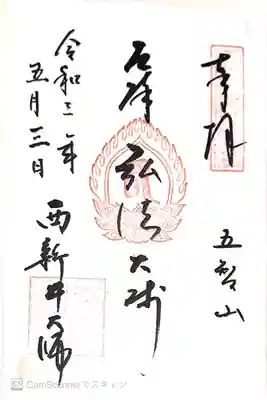 奉拝
五智山
厄除
弘法大師
令和三年
五月三日
西新井大師
CamScannerでスキャン